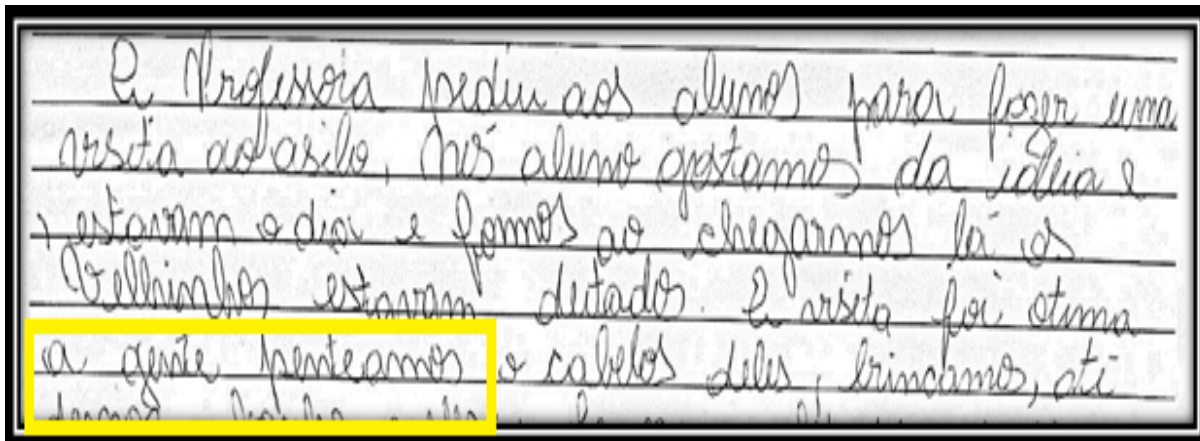 A Professora pediu aos alunos para fazer uma
visita ao asilo, nós aluno gostamos da ideia e
estavam o dia e fomos ao chegarmos lá os
Velhinhos estavam deitados. A visita foi otima
a gente penteamos o cabelos deles, brincamos, ati-
demos banho